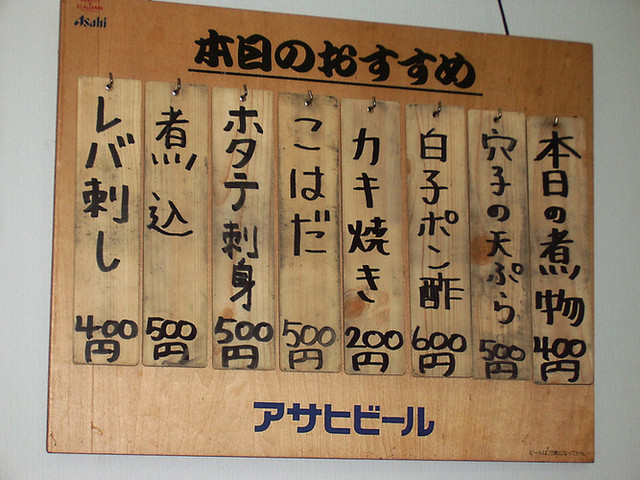 Asahi
本日のおすすめ
本日の煮物
400円
穴子の天ぷら
500円
白子ポン酢
600円
カキ焼き
200円
こはだ
500円
ホタテ刺身
500円
煮込
500円
レバ刺し
400円
アサヒビール